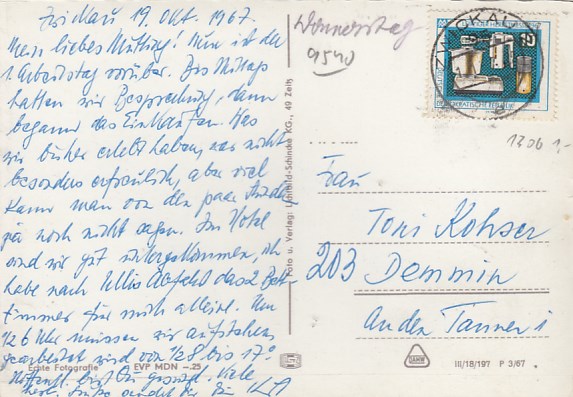 Zwickau 19. Okt. 1967.
Mein liebes Mutting! Nun ist der
1. Arbeitstag vorüber. Bis Mittag
hatten wir Besprechung, dann
begann das Einkaufen. Was
wir bisher erlebt haben, war nicht
besonders erfreulich, aber viel
kann man von den paar Stunden
ja noch nicht sagen. Im Hotel
sind wir gut untergekommen, ich
habe nach Ullis Abfahrt das 2 Bet-
zimmer für mich alleine. Um
1/2 6 Uhr müssen wir aufstehen,
gearbeitet wird von 1/2 8 bis 17°
Hoffentl. bist Du gesund. Viele
Donnerstag
9540
DEMOKRATISCHE REPUBLIK
20
1200 1,-
Frau
Toni Kohser
203 Demmin
An den Tannen 1
Foto u. Verlag: Lichtbild-Schincke KG., 49 Zeitz
Echte Fotografie EVP MDN -.25
III/18/197 P 3/67